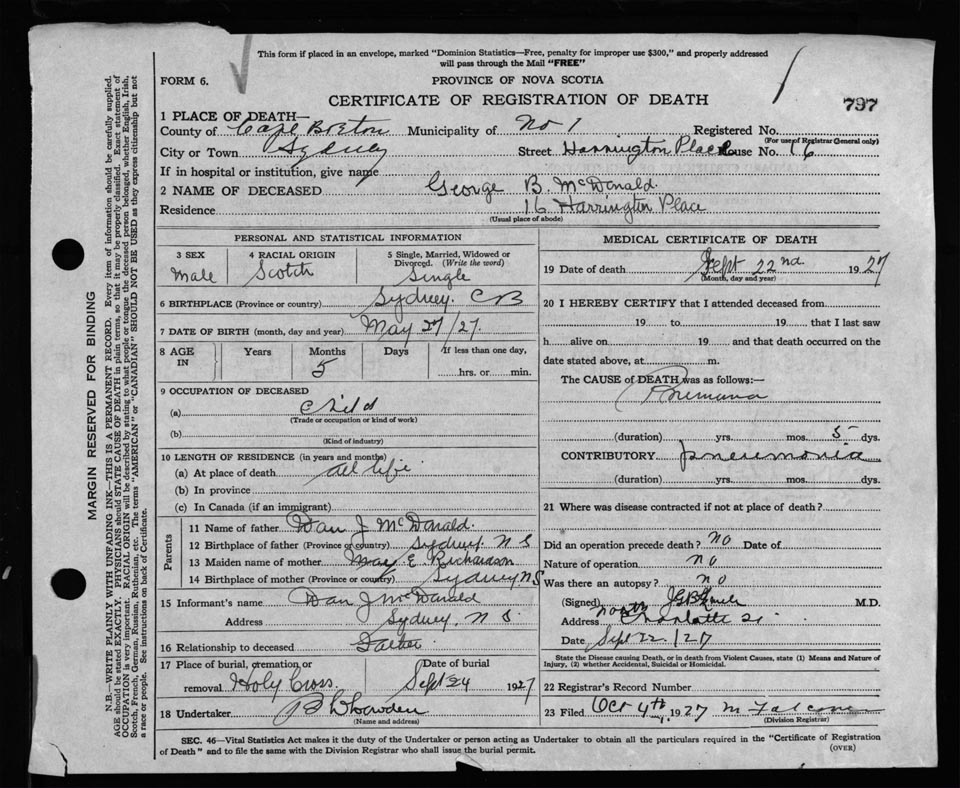 This form if placed in an envelope, marked "Dominion Statistics—Free, penalty for improper use $300," and properly addressed
will pass through the Mail "FREE"
FORM 6.
PROVINCE OF NOVA SCOTIA
CERTIFICATE OF REGISTRATION OF DEATH
797
1 PLACE OF DEATH—
County of Cape Breton Municipality of No 1 Registered No.
(For use of Registrar General only)
City or Town Sydney Street Harrington Place House No. 16
If in hospital or institution, give name
2 NAME OF DECEASED George B. McDonald.
Residence 16 Harrington Place
(Usual place of abode)
PERSONAL AND STATISTICAL INFORMATION
3 SEX 4 RACIAL ORIGIN 5 Single, Married, Widowed or
Divorced. (Write the word)
Male Scotch Single
6 BIRTHPLACE (Province or country) Sydney. CB
7 DATE OF BIRTH (month, day and year) May 27/27.
8 AGE IN Years Months Days If less than one day,
5 hrs. or min.
9 OCCUPATION OF DECEASED
(a) Child
(Trade or occupation or kind of work)
(b)
(Kind of industry)
10 LENGTH OF RESIDENCE (in years and months)
(a) At place of death all life
(b) In province
(c) In Canada (if an immigrant)
Parents
11 Name of father Dan J McDonald.
12 Birthplace of father (Province or country) Sydney N S
13 Maiden name of mother May E. Richardson
14 Birthplace of mother (Province or country) Sydney N.S
15 Informant's name Dan J McDonald
Address Sydney, N S
16 Relationship to deceased Father
17 Place of burial, cremation or Date of burial
removal Holy Cross Sept 24 1927
18 Undertaker
(Name and address)
MEDICAL CERTIFICATE OF DEATH
19 Date of death Sept 22nd 1927
(Month, day and year)
20 I HEREBY CERTIFY that I attended deceased from
19 to 19 that I last saw
h alive on 19 and that death occurred on the
date stated above, at m.
The CAUSE of DEATH was as follows:—
(duration) yrs. mos. 5 dys.
CONTRIBUTORY pneumonia
(duration) yrs. mos. dys.
21 Where was disease contracted if not at place of death?
Did an operation precede death? no Date of
Nature of operation no
Was there an autopsy? no
(Signed) M.D.
Address North Charlotte St
Date Sept 22/27
State the Disease causing Death, or in death from Violent Causes, state (1) Means and Nature of
Injury, (2) whether Accidental, Suicidal or Homicidal.
22 Registrar's Record Number
23 Filed Oct 4th, 1927 M Falconer
(Division Registrar)
SEC. 46—Vital Statistics Act makes it the duty of the Undertaker or person acting as Undertaker to obtain all the particulars required in the "Certificate of Registration
of Death" and to file the same with the Division Registrar who shall issue the burial permit.
(OVER)
MARGIN RESERVED FOR BINDING
N.B.—WRITE PLAINLY WITH UNFADING INK—THIS IS A PERMANENT RECORD. Every item of information should be carefully supplied.
AGE should be stated EXACTLY. PHYSICIANS should STATE CAUSE OF DEATH in plain terms, so that it may be properly classified. Exact statement of
OCCUPATION is very important. RACIAL ORIGIN will be described by stating to what people or tongue the deceased person belonged, whether English, Irish,
Scotch, French, German, Russian, Ruthenian, etc. The terms "AMERICAN" or "CANADIAN" SHOULD NOT BE USED as they express citizenship but not
a race or people. See instructions on back of Certificate.